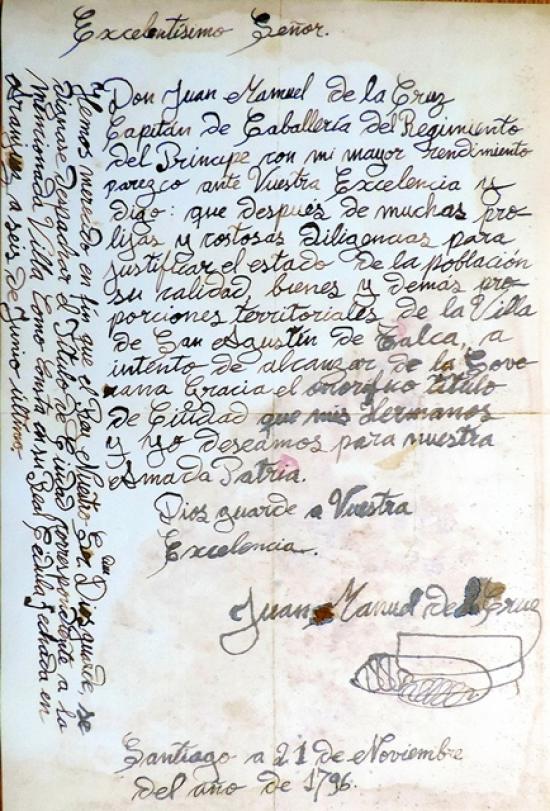 Excelentísimo Señor.
Don Juan Manuel de la Cruz
Capitán de Caballería del Regimiento
del Príncipe con mi mayor rendimiento
parezco ante Vuestra Excelencia y
digo: que después de muchas pro-
lijas y costosas diligencias para
justificar el estado de la población
su calidad, bienes y demás pro-
porciones territoriales de la Villa
de San Agustín de Talca, a
intento de alcanzar de la Sove
rana Gracia el honorífico título
de Ciudad que mis Hermanos
y yo deseamos para nuestra
Amada Patria.
Dios guarde a Vuestra
Excelencia.
Juan Manuel de la Cruz
Santiago a 21 de Noviembre
del año de 1796.
Hemos merecido en fin que el Rey Nuestro Sor. que Dios guarde, se
dignase despachar el Título de Ciudad correspondiente a la
mencionada Villa como consta en su Real Cédula fechada en
Aranjuez a seis de Junio último.